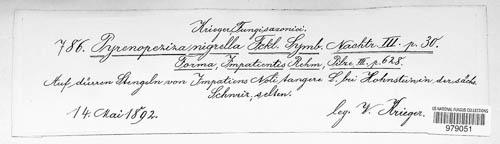 Krieger, Fungi saxonici.
786. Pyrenopeziza nigrella Fckl. Symb. Nachtr. III. p. 30.
Forma, Impatientis Rehm, Pilze III. p. 628.
Auf dürren Stengeln von Impatiens Noli tangere L. bei Hohnstein in der sächs.
Schweiz, selten.
14. Mai 1892.
leg. W. Krieger.
US NATIONAL FUNGUS COLLECTIONS
979051